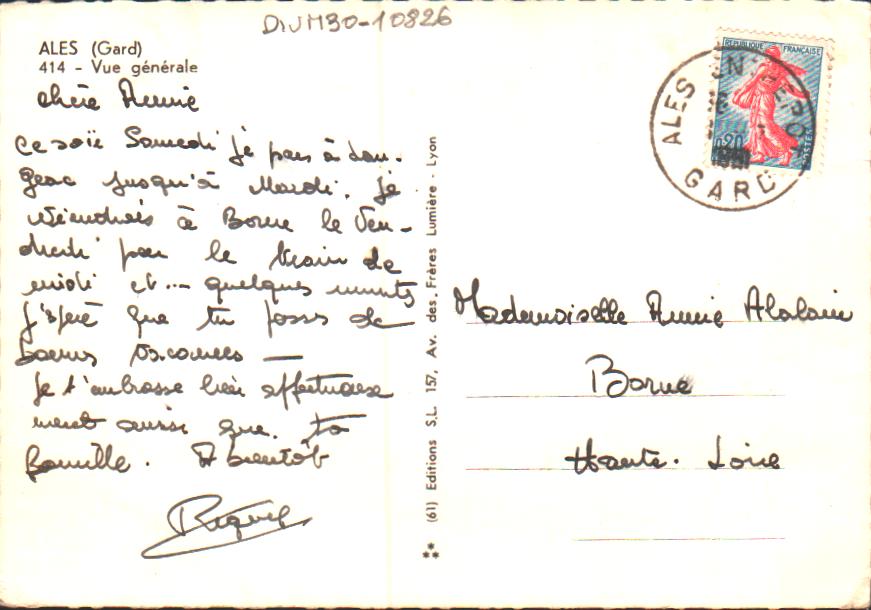 DIVM30-10826
ALES (Gard)
414 - Vue générale
chère Annie
Ce soir Samedi je pars à Lan-
geac jusqu'à Mardi. je
viendrais à Borne le Ven-
dredi par le train de
midi et... quelques minutes
j'espère que tu passes de
bonnes vacances —
Je t'embrasse bien affectueuse
ment ainsi que ta
famille. A bientôt
(61) Editions S.L. 157, Av. des. Frères Lumière - Lyon
REPUBLIQUE FRANÇAISE
0,20
POSTES
ALES
GARD
Mademoiselle Annie Alalain
Borne
Haute-Loire